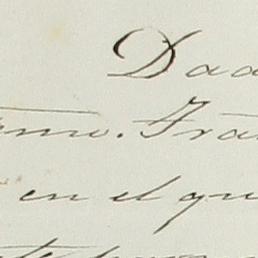 Dad
emo. Fra
en el qu